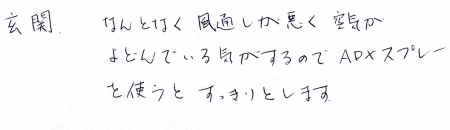 玄関. なんとなく 風通しが悪く 空気が
よどんでいる気がするので ADXスプレー
を使うと すっきりとします.